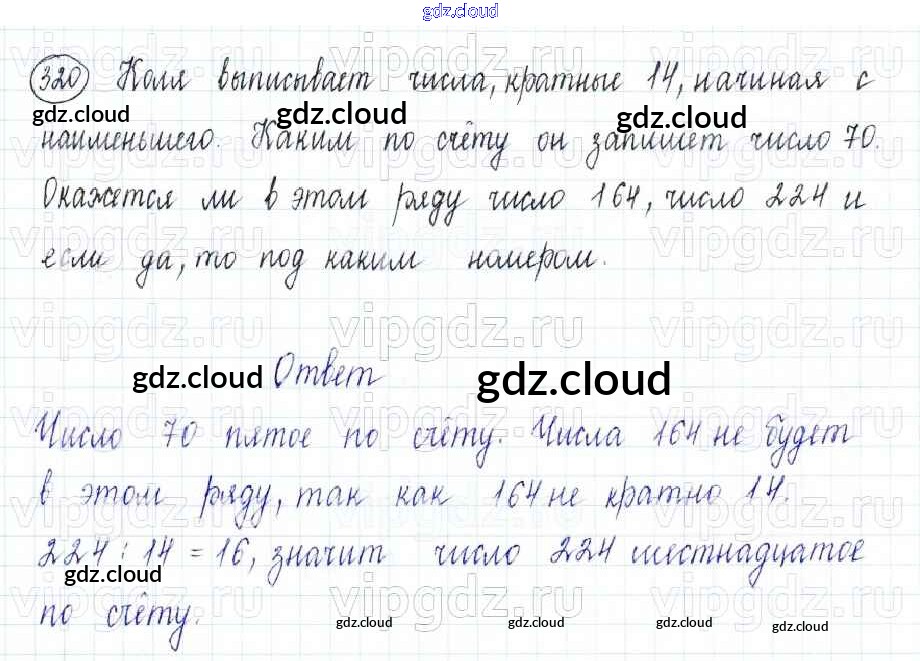 gdz.cloud
vipgdz.ru vipgdz.ru vipgdz.ru
320 Коля выписывает числа, кратные 14, начиная с
gdz.cloud gdz.cloud gdz.cloud
наименьшего. Каким по счёту он запишет число 70.
Окажется ли в этом ряду число 164, число 224 и
vipgdz.ru vipgdz.ru vipgdz.ru
если да, то под каким номером.
vipgdz.ru vipgdz.ru vipgdz.ru
gdz.cloud Ответ gdz.cloud
vipgdz.ru vipgdz.ru vipgdz.ru
Число 70 пятое по счёту. Числа 164 не будет
в этом ряду, так как 164 не кратно 14.
vipgdz.ru vipgdz.ru vipgdz.ru
224 : 14 = 16, значит число 224 шестнадцатое
gdz.cloud
vipgdz.ru vipgdz.ru vipgdz.ru
по счёту.
gdz.cloud gdz.cloud gdz.cloud gdz.cloud